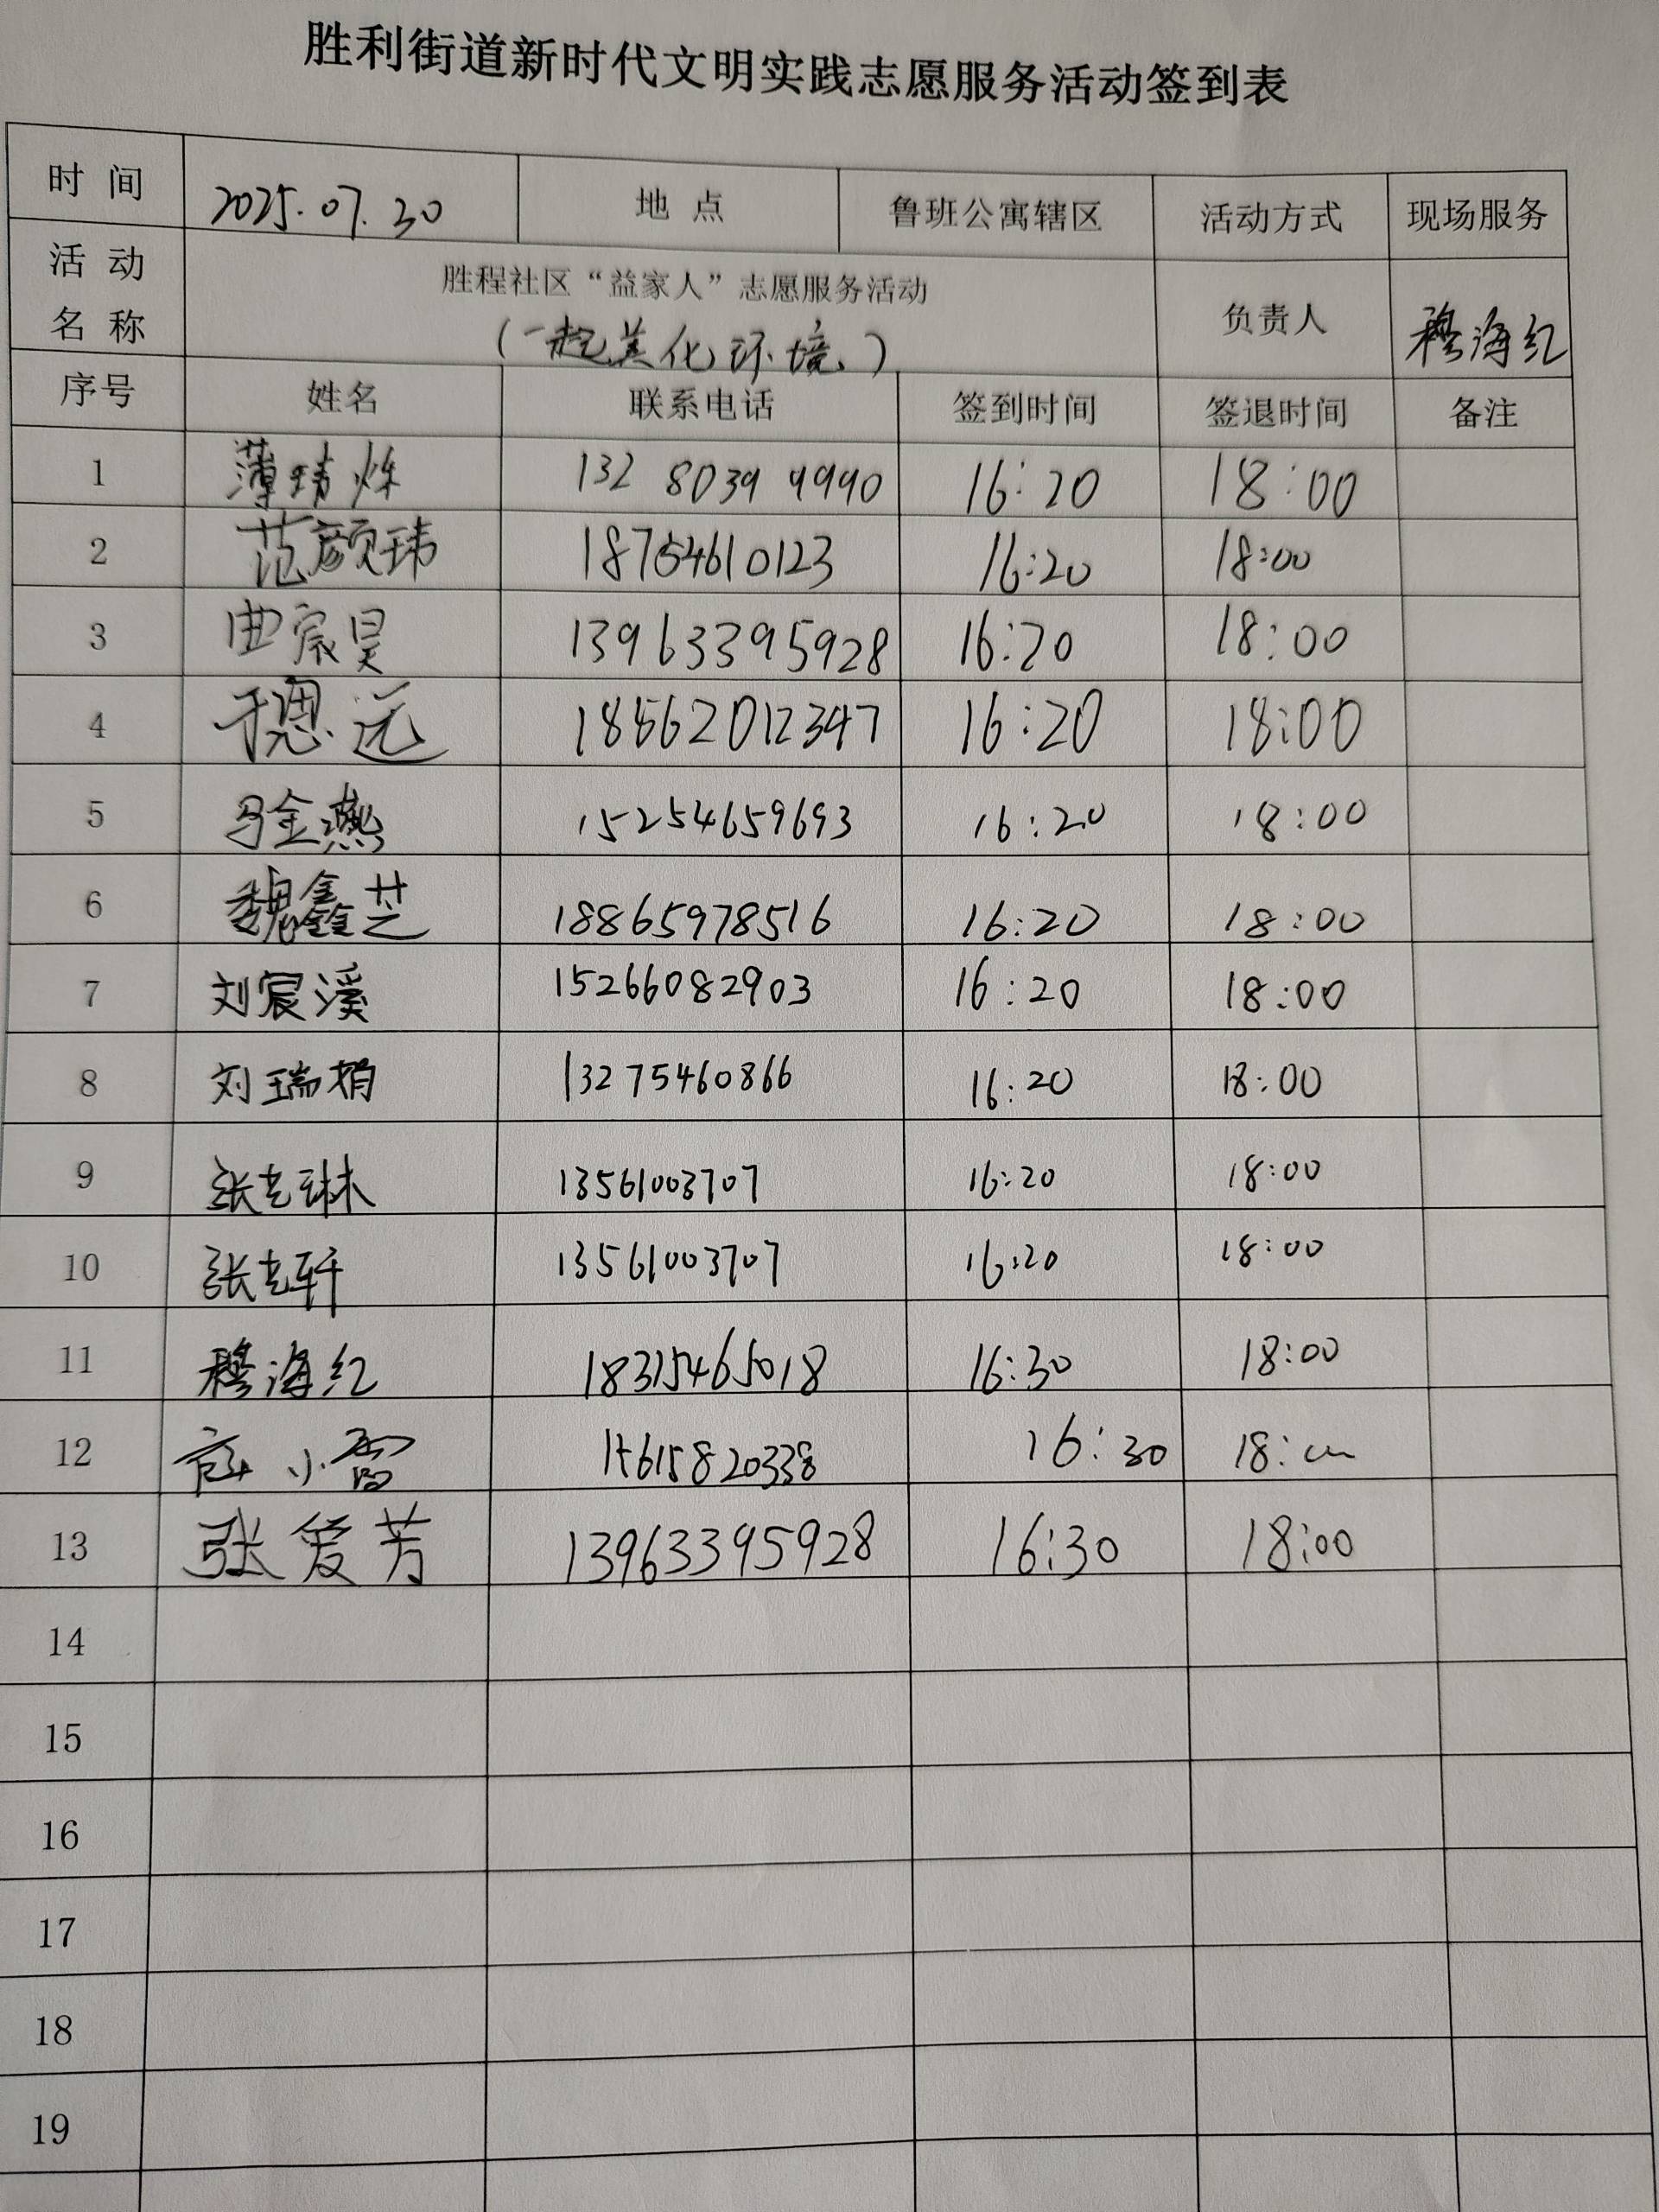 胜利街道新时代文明实践志愿服务活动签到表
时 间 2025.07.30 地 点 鲁班公寓辖区 活动方式 现场服务
活 动 名 称 胜程社区“益家人”志愿服务活动 负责人 穆海红
(一起美化环境)
序号 姓名 联系电话 签到时间 签退时间 备注
1 薄玮烁 132 8039 9990 16:20 18:00
2 范颜玮 18754610123 16:20 18:00
3 曲宸昊 13963395928 16:20 18:00
4 于恩远 18562012347 16:20 18:00
5 马金燕 15254659693 16:20 18:00
6 魏鑫芝 18865978516 16:20 18:00
7 刘宸溪 15266082903 16:20 18:00
8 刘瑞 13275460866 16:20 18:00
9 张艺琳 13561003707 16:20 18:00
10 张艺轩 13561003707 16:20 18:00
11 穆海红 18315465018 16:30 18:00
12 小雪 15615820338 16:30 18:00
13 张爱芳 13963395928 16:30 18:00
14
15
16
17
18
19